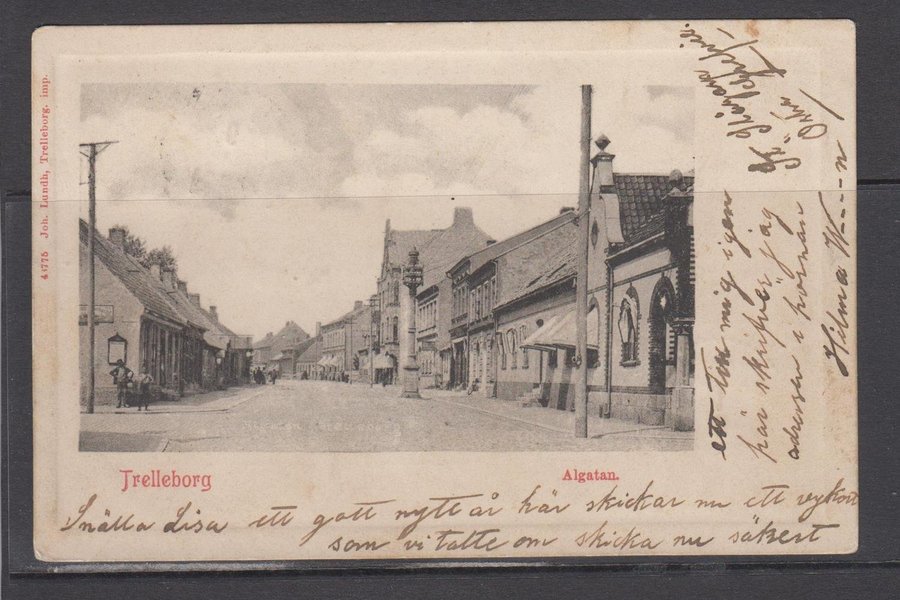 44775 Joh. Lundh, Trelleborg. imp.
Trelleborg
Algatan.
Snälla Lisa ett gott nytt år här skickar nu ett vykort
som vi talte om skicka nu säkert
ett till mig igen
när skrifver jag
adressen i hörnan
Hilma W---n